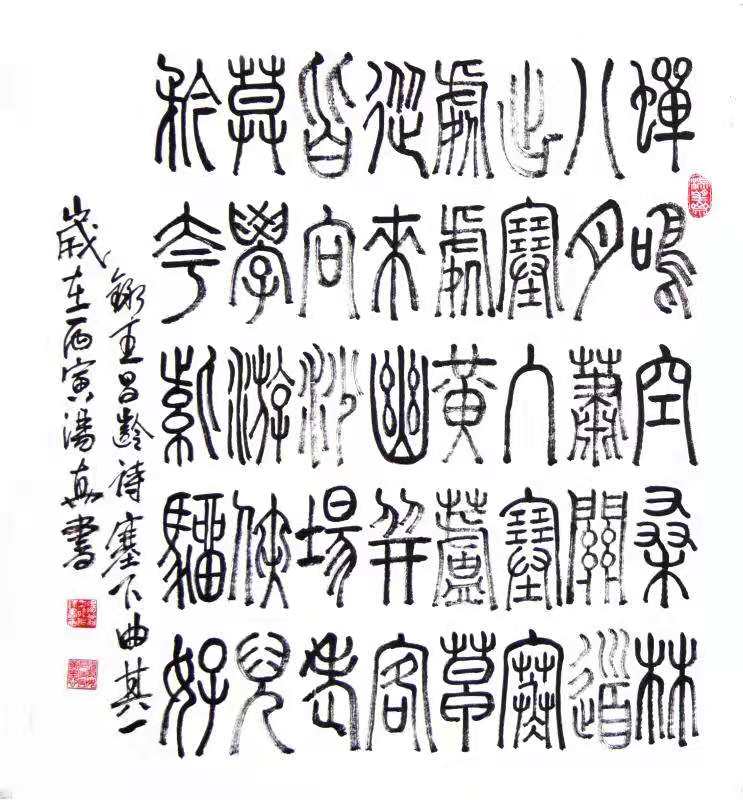 蟬鳴空桑林
八月蕭關道
出塞入塞寒
處處黃蘆草
從來幽并客
皆向沙場老
莫學游俠兒
矜夸紫騮好
錄王昌齡诗塞下曲其一
歲在丙寅湯真書